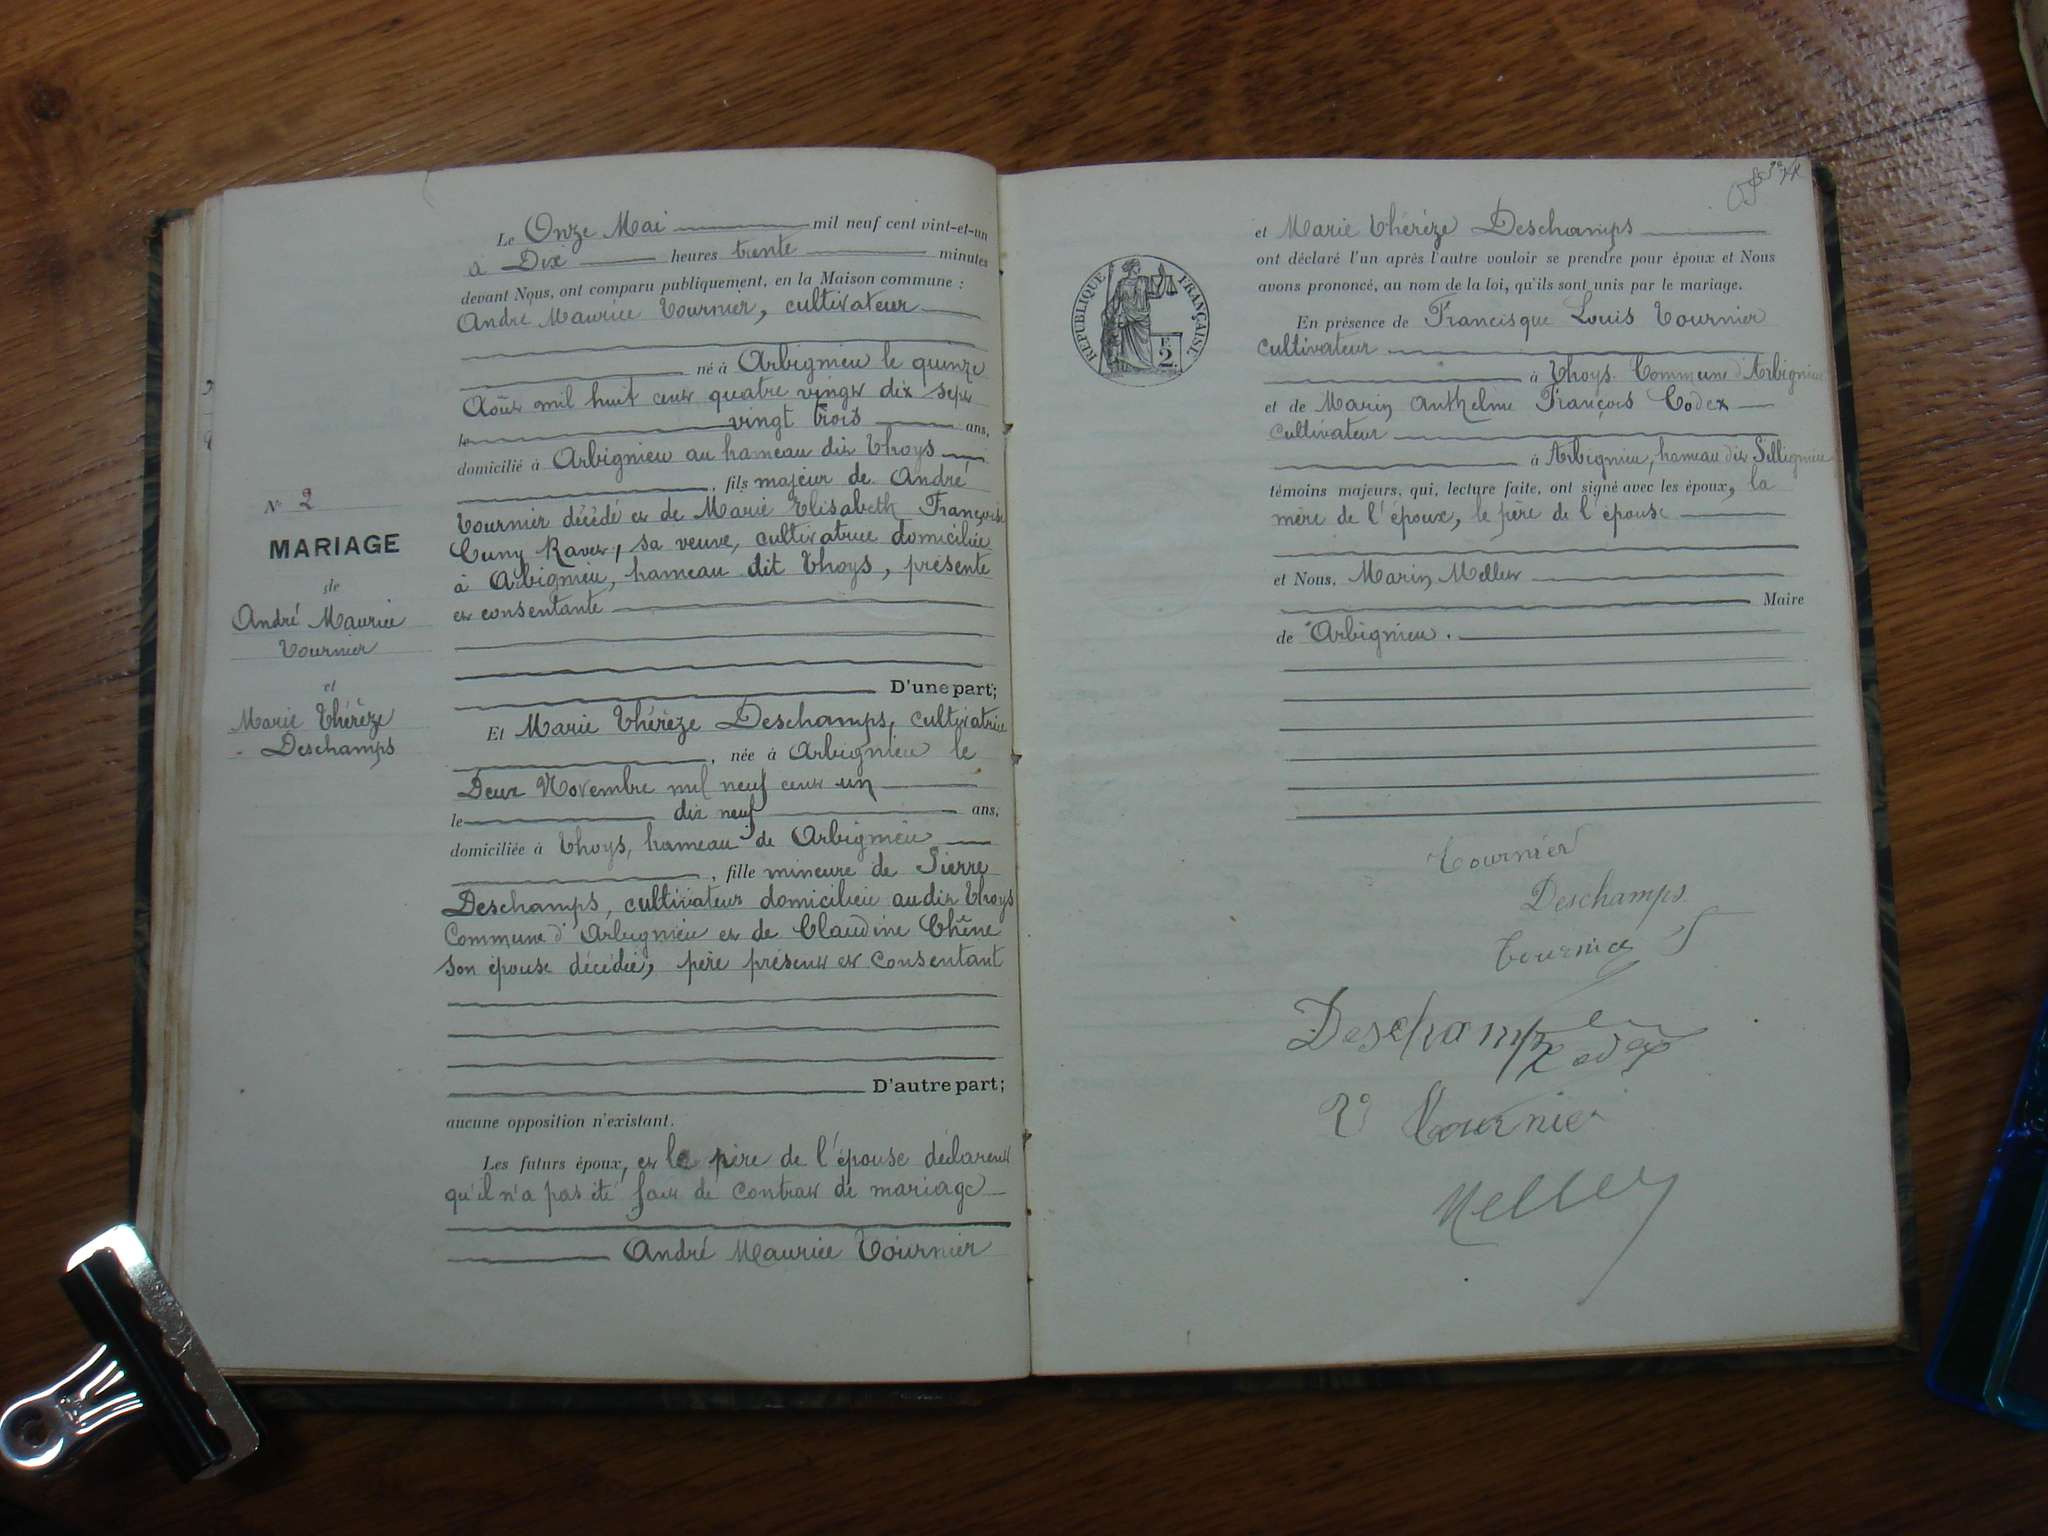 Le Onze Mai mil neuf cent vint-et-un
à Dix heures trente minutes
devant Nous, ont comparu publiquement, en la Maison commune :
André Maurice Tournier, cultivateur
né à Arbignieu le quinze
Août mil huit cent quatre vingt dix sept
le vingt trois ans,
domicilié à Arbignieu au hameau dit Thoys
, fils majeur de André
Tournier décédé et de Marie Elisabeth Françoise
Cuny Ravet, sa veuve, cultivatrice domiciliée
à Arbignieu, hameau dit Thoys, présente
et consentante
D'une part;
N° 2
MARIAGE
de
André Maurice
Tournier
et
Marie Thérèze
Deschamps
Et Marie Thérèze Deschamps, cultivatrice
, née à Arbignieu le
Deux Novembre mil neuf cent un
le dix neuf ans,
domiciliée à Thoys, hameau de Arbignieu
, fille mineure de Pierre
Deschamps, cultivateur domicilieu audit Thoys
Commune d'Arbignieu et de Claudine Chêne
son épouse décédée, père présent et consentant
D'autre part;
aucune opposition n'existant.
Les futurs époux, et le père de l'épouse déclarent
qu'il n'a pas été fait de contrat de mariage
André Maurice Tournier
RÉPUBLIQUE FRANÇAISE
2 F
et Marie Thérèze Deschamps
ont déclaré l'un après l'autre vouloir se prendre pour époux et Nous
avons prononcé, au nom de la loi, qu'ils sont unis par le mariage.
En présence de Francisque Louis Tournier
cultivateur
à Thoys Commune d'Arbignieu
et de Marin Anthelme François Codex
cultivateur
à Arbignieu, hameau dit Sillignieu
témoins majeurs, qui, lecture faite, ont signé avec les époux, la
mère de l'époux, le père de l'épouse
et Nous, Marin Mellet
Maire
de Arbignieu.
Tournier
Deschamps
Tournier
Deschamps
Codex
Vᵉ Tournier
Mellet